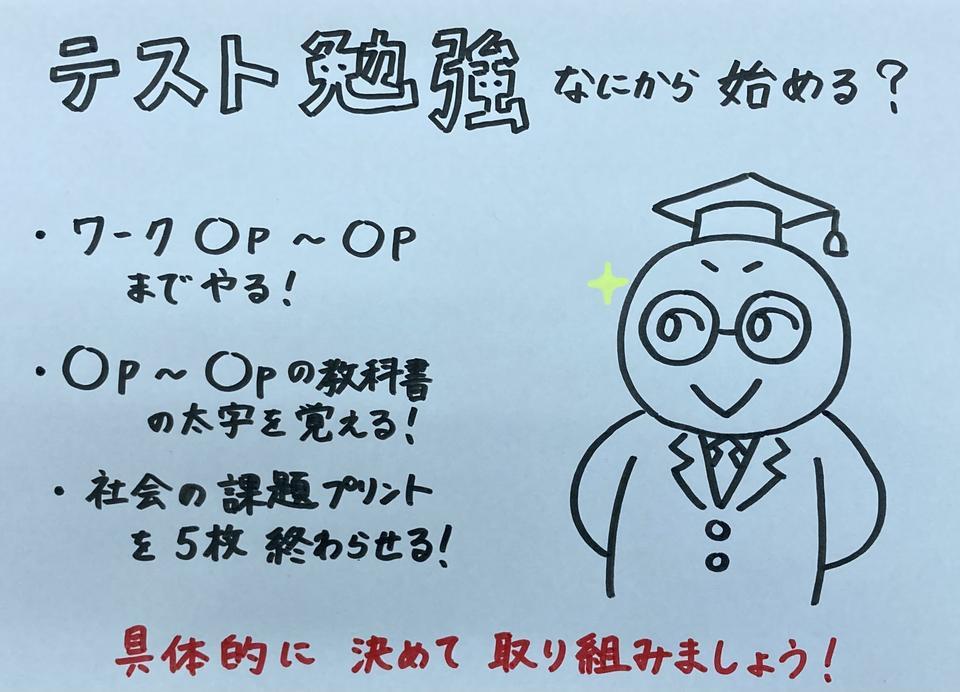 テスト勉強 なにから 始める？
・ワーク 〇P ～ 〇P
までやる！
・〇P ～ 〇Pの教科書
の太字を覚える！
・社会の課題プリント
を5枚 終わらせる！
具体的に 決めて 取り組みましょう！